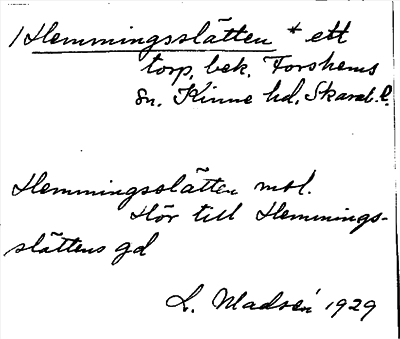 1 Hemmingsslätten * ett
torp, bek. Forshems
sn. Kinne hd, Skarab. l.
Hemmingsslätten mbl.
Hör till Hemmings-
slättens gd
L. Madsén 1929